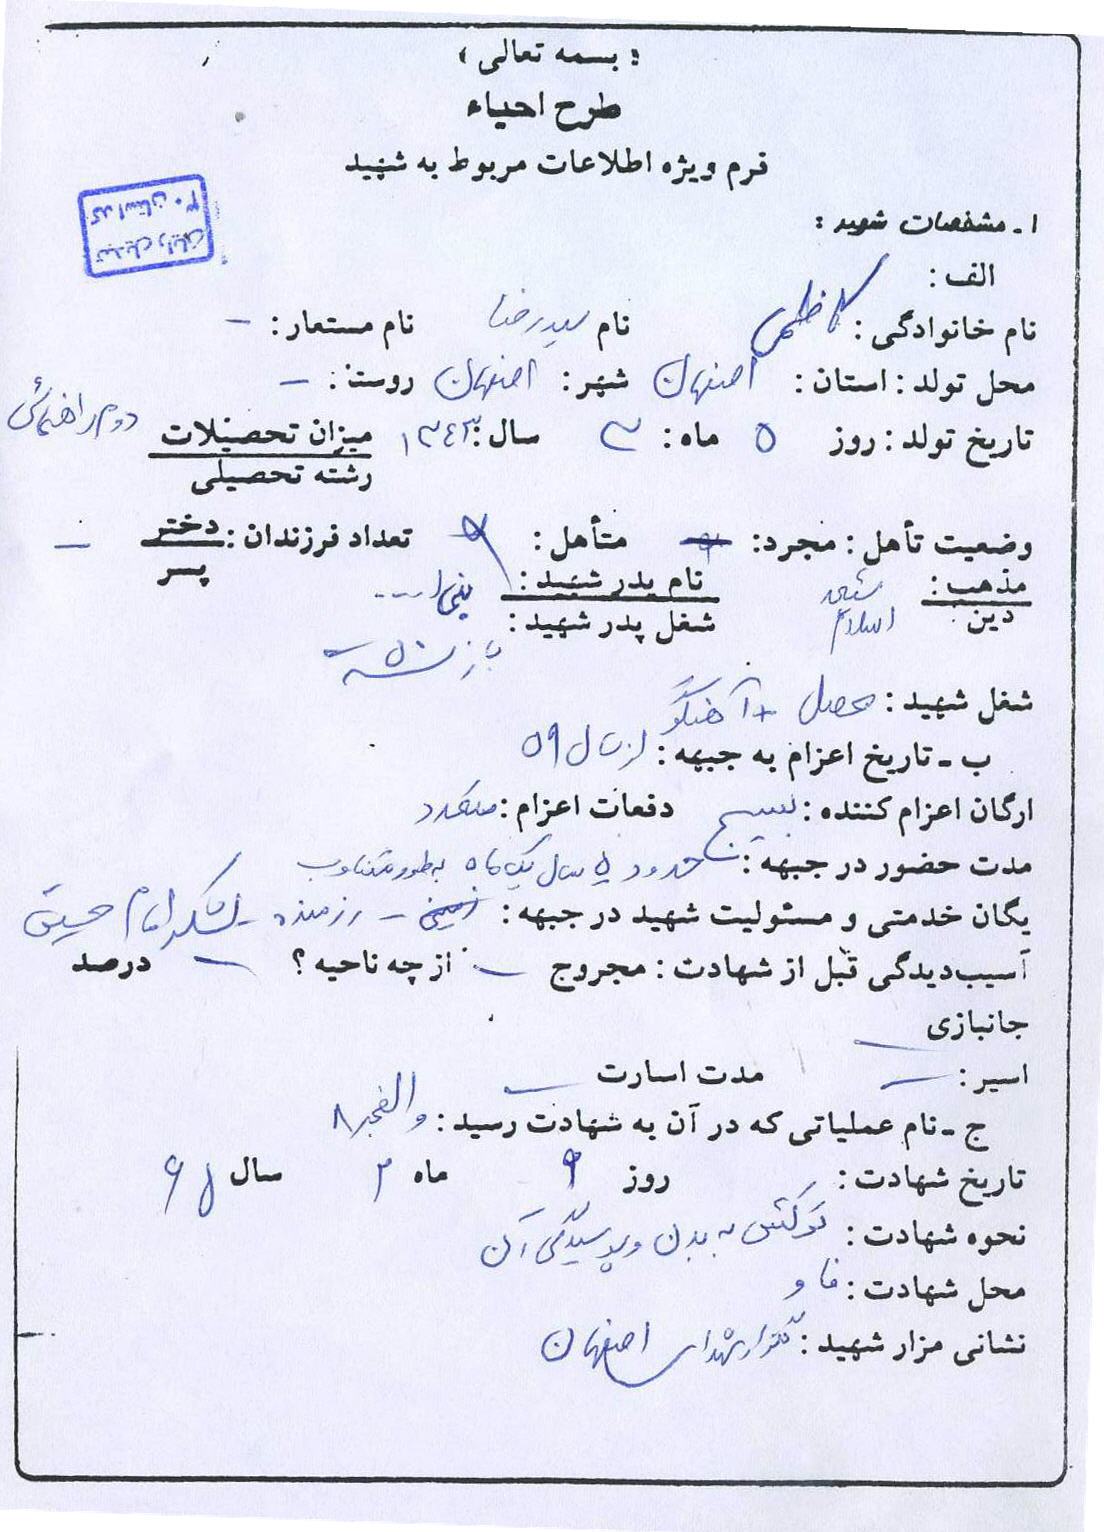 « بسمه تعالی »
طرح احیاء
فرم ویژه اطلاعات مربوط به شهید
کد استان ۳۰
تبدیل رایانه
۱ - مشخصات شهید :
الف :
نام خانوادگی : کاظمی نام سیدرضا نام مستعار : –
محل تولد : استان : اصفهان شهر : اصفهان روستا : –
تاریخ تولد : روز ۵ ماه : ۳ سال : ۱۳۴۳ میزان تحصیلات دوم راهنمائی
رشته تحصیلی
وضعیت تأهل : مجرد : متأهل : تعداد فرزندان : دختر –
پسر
مذهب : شیعه نام پدر شهید :
دین اسلام شغل پدر شهید : بازنشسته
شغل شهید : محصل + آهنگر
ب - تاریخ اعزام به جبهه : از سال ۵۹
ارگان اعزام کننده : بسیج دفعات اعزام : متعدد
مدت حضور در جبهه : حدود ۵ سال یک ماه بطور متناوب
یگان خدمتی و مسئولیت شهید در جبهه : رزمنده - لشکر امام حسین
آسیب‌دیدگی قبل از شهادت : مجروح – از چه ناحیه ؟ – درصد
جانبازی –
اسیر : – مدت اسارت –
ج - نام عملیاتی که در آن به شهادت رسید : والفجر ۸
تاریخ شهادت : روز ۹ ماه ۲ سال ۶۵
نحوه شهادت : ترکش به بدن و آن
محل شهادت : فاو
نشانی مزار شهید : گلزار شهدای اصفهان